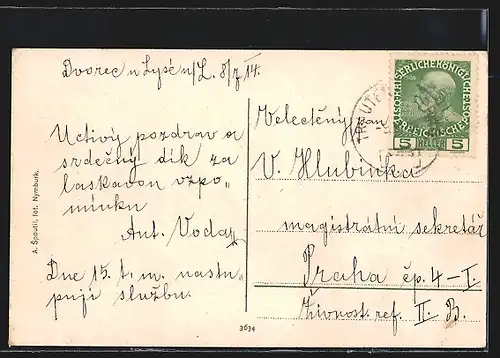 Dvorec u Lysé n/L. 8/7 14.
Uctivý pozdrav a
srdečný dík za
laskavou vzpo„
mínku
Ant. Voda
Dne 15. t. m. nastu-
puji službu.
A. Špoutil, fot. Nymburk.
3634
Velectěný pan
V. Hlubinka
magistrátní sekretář
Praha čp. 4-I.
Živnost. ref. II. B.
KAISERLICHE KÖNIGLICHE
5 HELLER 5